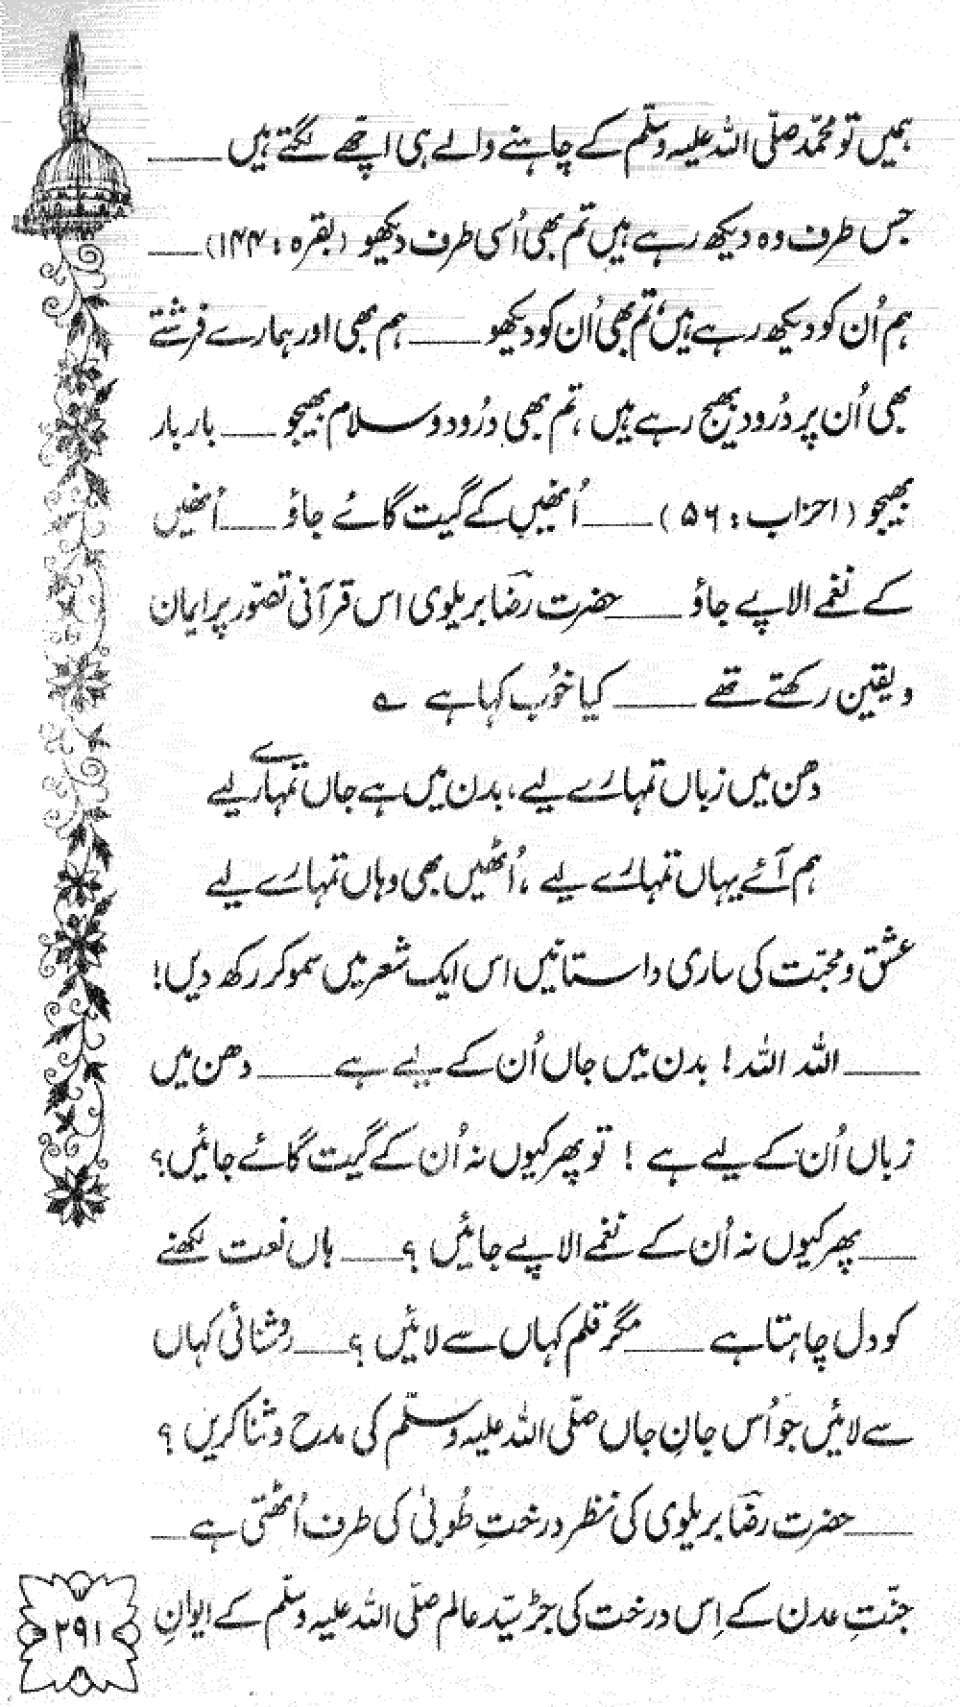 ہمیں تو محمّد صلّی اللہ علیہ وسلّم کے چاہنے والے ہی اچھّے لگتے ہیں ____
جس طرف وہ دیکھ رہے ہیں تم بھی اُسی طرف دیکھو (بقرہ : ۱۴۴) ____
ہم اُن کو دیکھ رہے ہیں، تم بھی اُن کو دیکھو ____ ہم بھی اور ہمارے فرشتے
بھی اُن پر دُرود بھیج رہے ہیں ، تم بھی دُرود و سلام بھیجو ____ بار بار
بھیجو (احزاب : ۵۶) ____ اُنھیں کے گیت گائے جاؤ ____ اُنھیں
کے نغمے الاپے جاؤ ____ حضرت رضؔا بریلوی اس قرآنی تصوّر پر ایمان
و یقین رکھتے تھے ____ کیا خُوب کہا ہے ؎
دھن میں زباں تمہارے لیے ، بدن میں ہے جاں تمہارے لیے
ہم آئے یہاں تمہارے لیے ، اُٹھیں بھی وہاں تمہارے لیے
عشق و محبّت کی ساری داستانیں اس ایک شعر میں سمو کر رکھ دیں!
____ اللہ اللہ ! بدن میں جاں اُن کے لیے ہے ____ دھن میں
زباں اُن کے لیے ہے ! تو پھر کیوں نہ اُن کے گیت گائے جائیں؟
____ پھر کیوں نہ اُن کے نغمے الاپے جائیں ؟ ____ ہاں نعت لکھنے
کو دل چاہتا ہے ____ مگر قلم کہاں سے لائیں ؟ ____ روشنائی کہاں
سے لائیں جو اُس جانِ جاں صلّی اللہ علیہ وسلّم کی مدح و ثنا کریں ؟
____ حضرت رضؔا بریلوی کی نظر درختِ طُوبیٰ کی طرف اُٹھتی ہے ____
جنّتِ عدن کے اِس درخت کی جڑ سیّد عالم صلّی اللہ علیہ وسلّم کے ایوانِ
۲۹۱